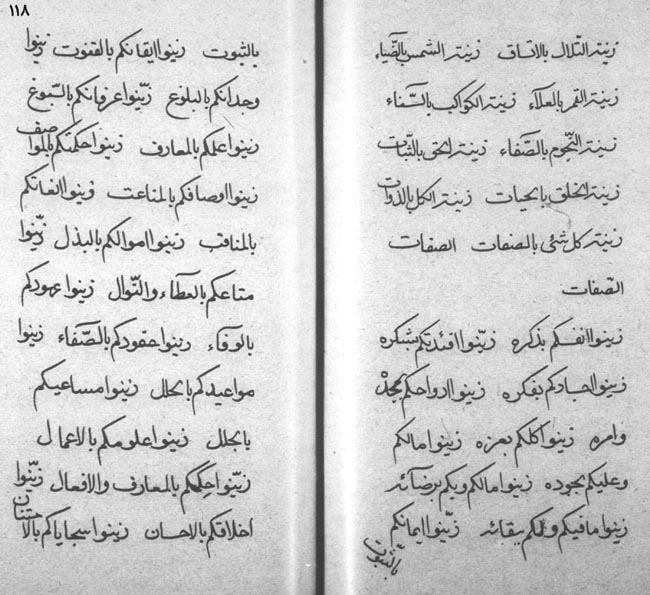 زينة التلال بالاتساق زينة الشمس بالضياء
زينة القمر بالعلاء زينة الكواكب بالسناء
زينة النجوم بالصفاء زينة الحق بالثبات
زينة الخلق بالحيات زينة الكل بالذوات
زينة كل شئ بالصفات الصفات
الصفات
زينوا انفسكم بذكره زينوا افئدتكم بشكره
زينوا اجسادكم بفكره زينوا ارواحكم بمجده
وامره زينوا كلكم بعزه زينوا مالكم
وعليكم بجوده زينوا مالكم وبكم برضائه
زينوا ما فيكم ولكم ببقائه زينوا ايمانكم
بالثبوت
١١٨
بالثبوت زينوا ايقانكم بالقنوت زينوا
وجدانكم بالبلوغ زينوا عرفانكم بالسبوغ
زينوا علمكم بالمعارف زينوا حكمتكم بالمواصف
زينوا اوصافكم بالمناعت وزينوا
بالمناقب زينوا اموالكم بالبذل زينوا
متاعكم بالعطاء والنوال زينوا عهودكم
بالوفاء زينوا عقودكم بالصفاء زينوا
مواعيدكم بالحلل زينوا مساعيكم
بالجلل زينوا علومكم بالاعمال
زينوا حكمكم بالمعارف والافعال زينوا
اخلاقكم بالاحسان زينوا سجاياكم بالامتنان